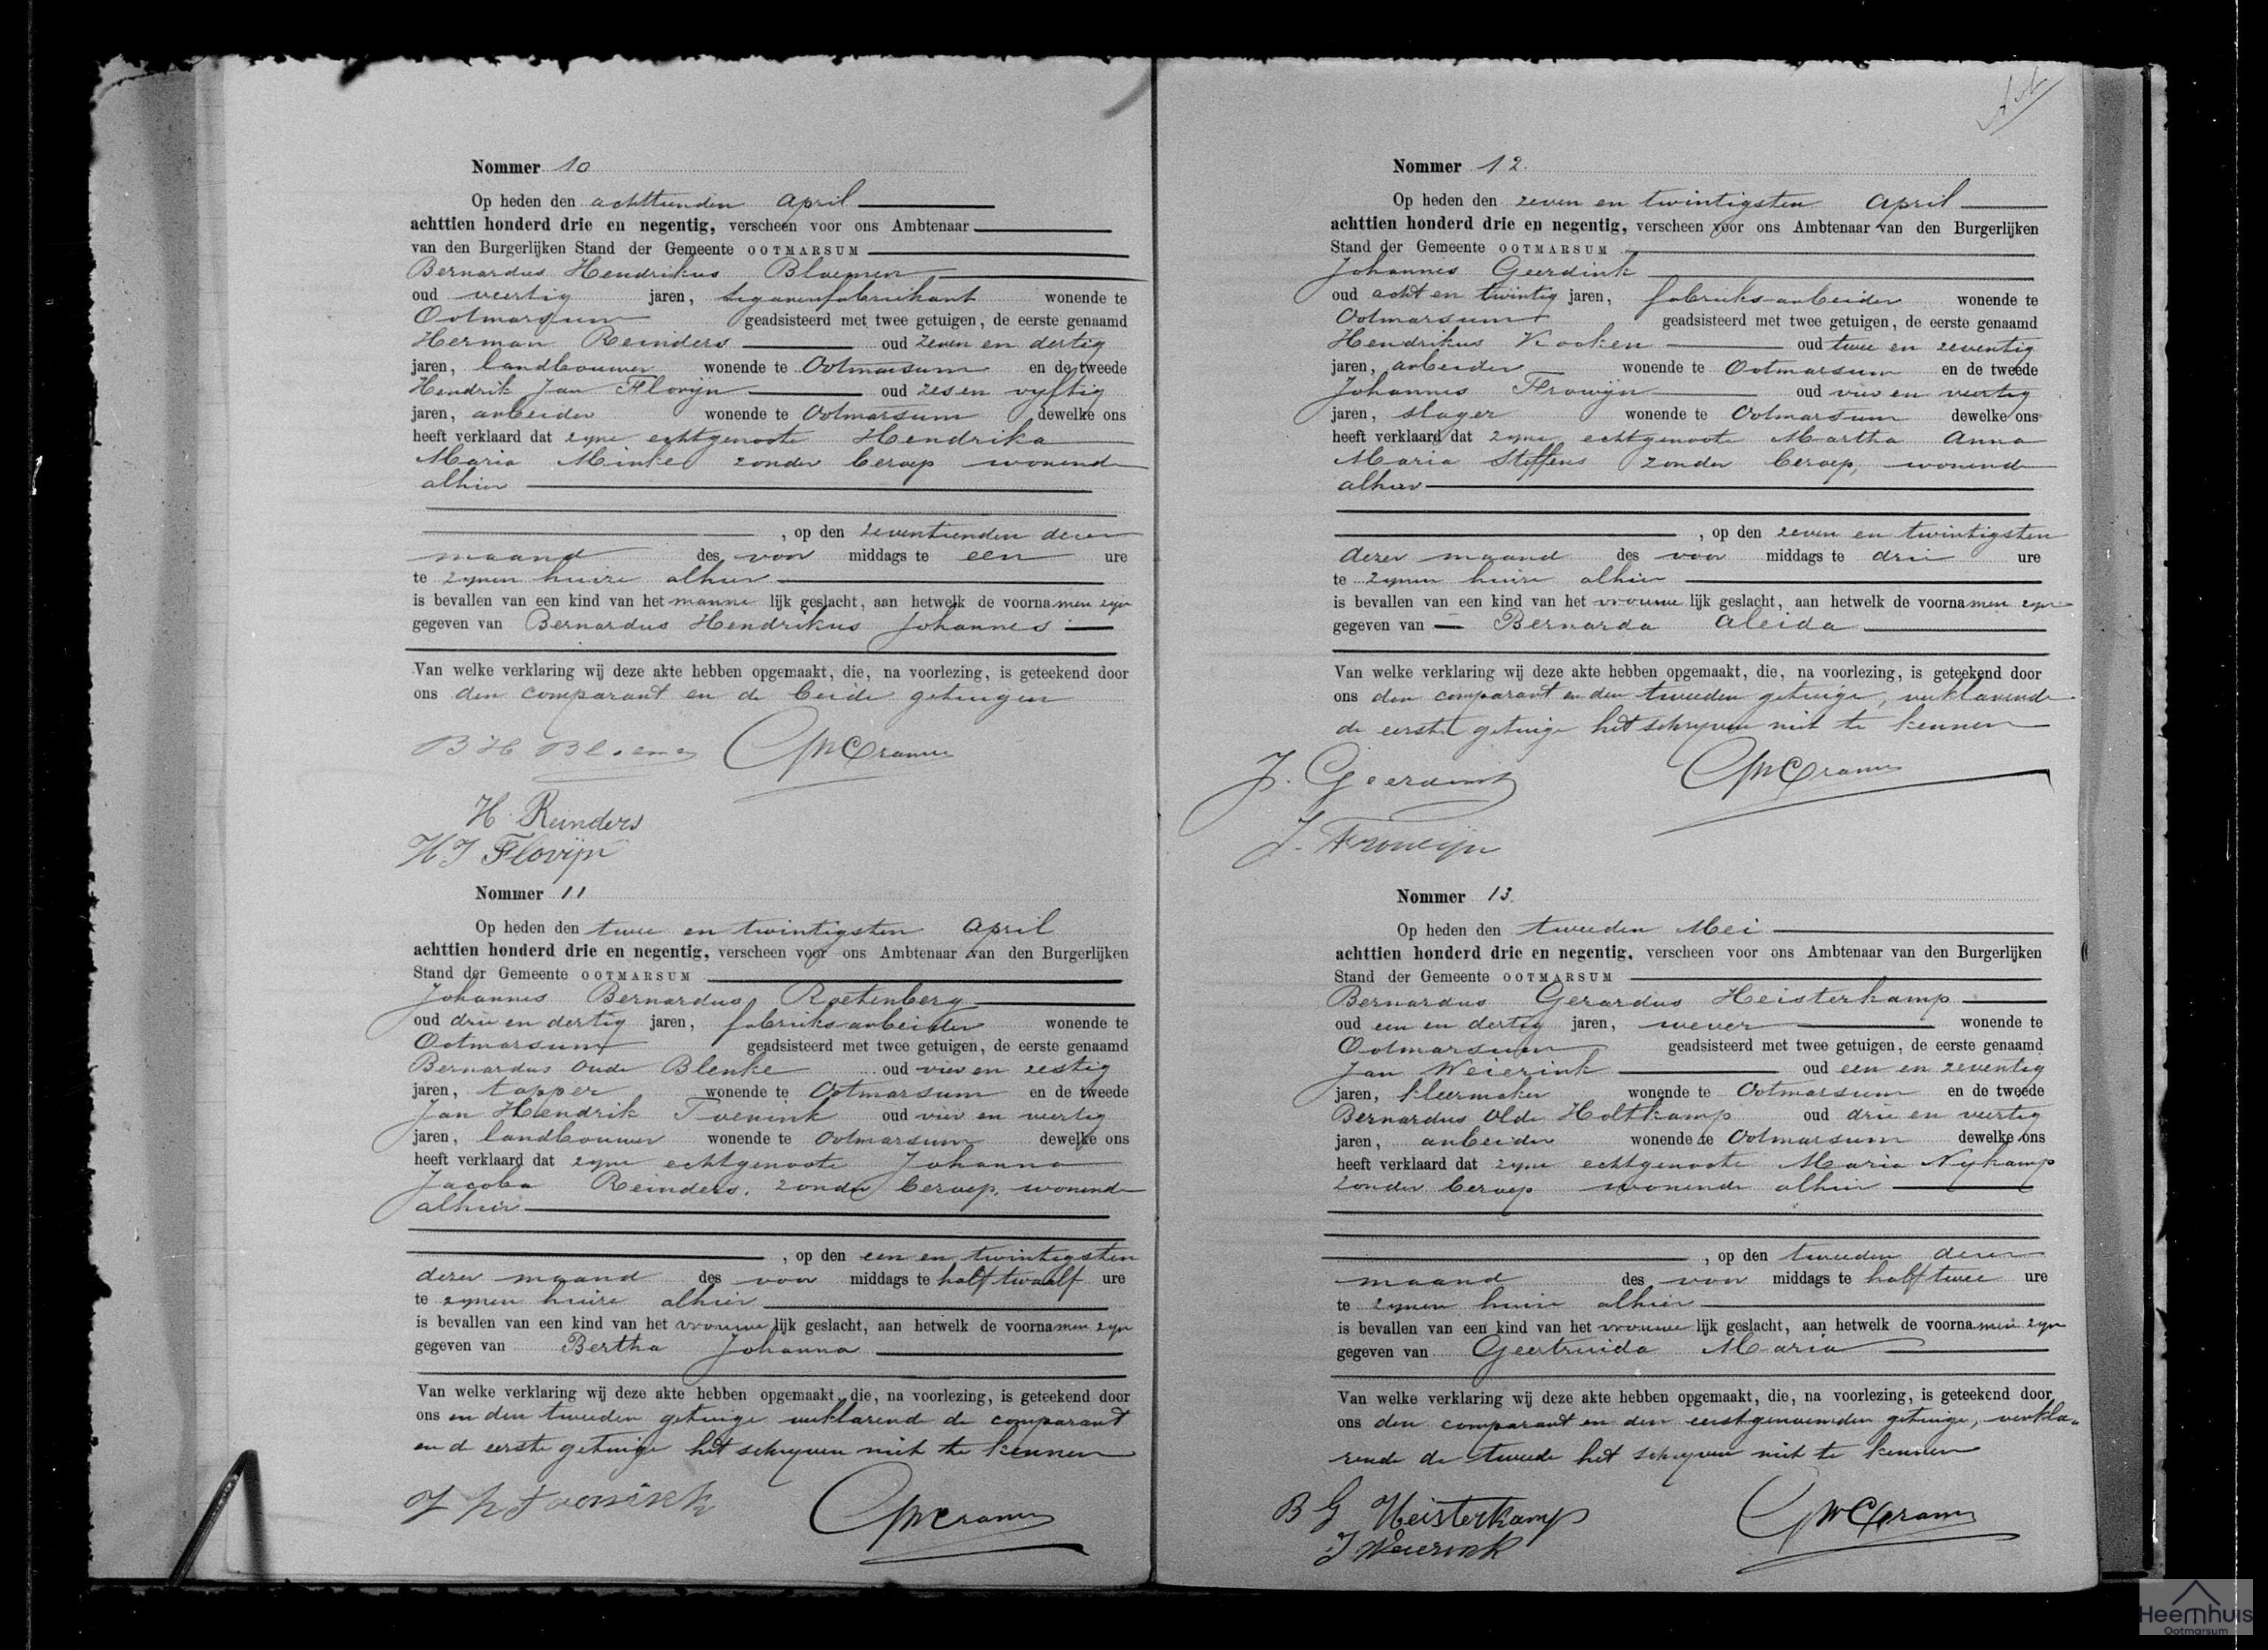 Nommer 10
Op heden den achttienden April
achttien honderd drie en negentig, verscheen voor ons Ambtenaar
van den Burgerlijken Stand der Gemeente OOTMARSUM
Bernardus Hendrikus Bloemen
oud veertig jaren, sigarenfabrikant wonende te
Ootmarsum geadsisteerd met twee getuigen, de eerste genaamd
Herman Reinders oud zeven en dertig
jaren, landbouwer wonende te Ootmarsum en de tweede
Hendrik Jan Flovijn oud zes en vyftig
jaren, arbeider wonende te Ootmarsum dewelke ons
heeft verklaard dat zyne echtgenoote Hendrika
Maria Minke zonder beroep wonende
alhier
, op den zeventienden dezer
maand des voor middags te een ure
te zynen huize alhier
is bevallen van een kind van het manne lijk geslacht, aan hetwelk de voornamen zyn
gegeven van Bernardus Hendrikus Johannes
Van welke verklaring wij deze akte hebben opgemaakt, die, na voorlezing, is geteekend door
ons den comparant en de beide getuigen
B H Bloemen Cramer
H. Reinders
H J Flovijn
Nommer 11
Op heden den twee en twintigsten April
achttien honderd drie en negentig, verscheen voor ons Ambtenaar van den Burgerlijken
Stand der Gemeente OOTMARSUM
Johannes Bernardus Roetenberg
oud drie en dertig jaren, fabrieks-arbeider wonende te
Ootmarsum geadsisteerd met twee getuigen, de eerste genaamd
Bernardus Oude Blenke oud vier en zestig
jaren, tapper wonende te Ootmarsum en de tweede
Jan Hendrik Tvenink oud vier en veertig
jaren, landbouwer wonende te Ootmarsum dewelke ons
heeft verklaard dat zyne echtgenoote Johanna
Jacoba Reinders, zonder beroep, wonende
alhier
, op den een en twintigsten
dezer maand des voor middags te half twaalf ure
te zynen huize alhier
is bevallen van een kind van het vrouwe lijk geslacht, aan hetwelk de voornamen zyn
gegeven van Bertha Johanna
Van welke verklaring wij deze akte hebben opgemaakt, die, na voorlezing, is geteekend door
ons en den tweeden getuige verklarend de comparant
en de eerste getuige het schryven niet te kennen
Cramer
Nommer 12.
Op heden den zeven en twintigsten April
achttien honderd drie en negentig, verscheen voor ons Ambtenaar van den Burgerlijken
Stand der Gemeente OOTMARSUM
Johannes Geerdink
oud acht en twintig jaren, fabrieks-arbeider wonende te
Ootmarsum geadsisteerd met twee getuigen, de eerste genaamd
Hendrikus Kooken oud twee en zeventig
jaren, arbeider wonende te Ootmarsum en de tweede
Johannes Frowijn oud vier en veertig
jaren, slager wonende te Ootmarsum dewelke ons
heeft verklaard dat zyne echtgenoote Martha Anna
Maria Steffens zonder beroep, wonende
alhier
, op den zeven en twintigsten
dezer maand des voor middags te drie ure
te zynen huize alhier
is bevallen van een kind van het vrouwe lijk geslacht, aan hetwelk de voornamen zyn
gegeven van Bernarda Aleida
Van welke verklaring wij deze akte hebben opgemaakt, die, na voorlezing, is geteekend door
ons den comparant en den tweeden getuige, verklarende
de eerste getuige het schryven niet te kennen
J. Geerdink Cramer
J. Frowijn
Nommer 13.
Op heden den tweeden Mei
achttien honderd drie en negentig, verscheen voor ons Ambtenaar van den Burgerlijken
Stand der Gemeente OOTMARSUM
Bernardus Gerardus Heisterkamp
oud een en dertig jaren, wever wonende te
Ootmarsum geadsisteerd met twee getuigen, de eerste genaamd
Jan Weierink oud een en zeventig
jaren, kleermaker wonende te Ootmarsum en de tweede
Bernardus Olde Holtkamp oud drie en veertig
jaren, arbeider wonende te Ootmarsum dewelke ons
heeft verklaard dat zyne echtgenoote Maria Nykamp
zonder beroep wonende alhier
, op den tweeden dezer
maand des voor middags te half twee ure
te zynen huize alhier
is bevallen van een kind van het vrouwe lijk geslacht, aan hetwelk de voornamen zyn
gegeven van Geertruida Maria
Van welke verklaring wij deze akte hebben opgemaakt, die, na voorlezing, is geteekend door
ons den comparant en den eerstgenoemden getuige, verkla-
rende de tweede het schryven niet te kennen
B G Heisterkamp Cramer
J. Weierink
Heemhuis
Ootmarsum